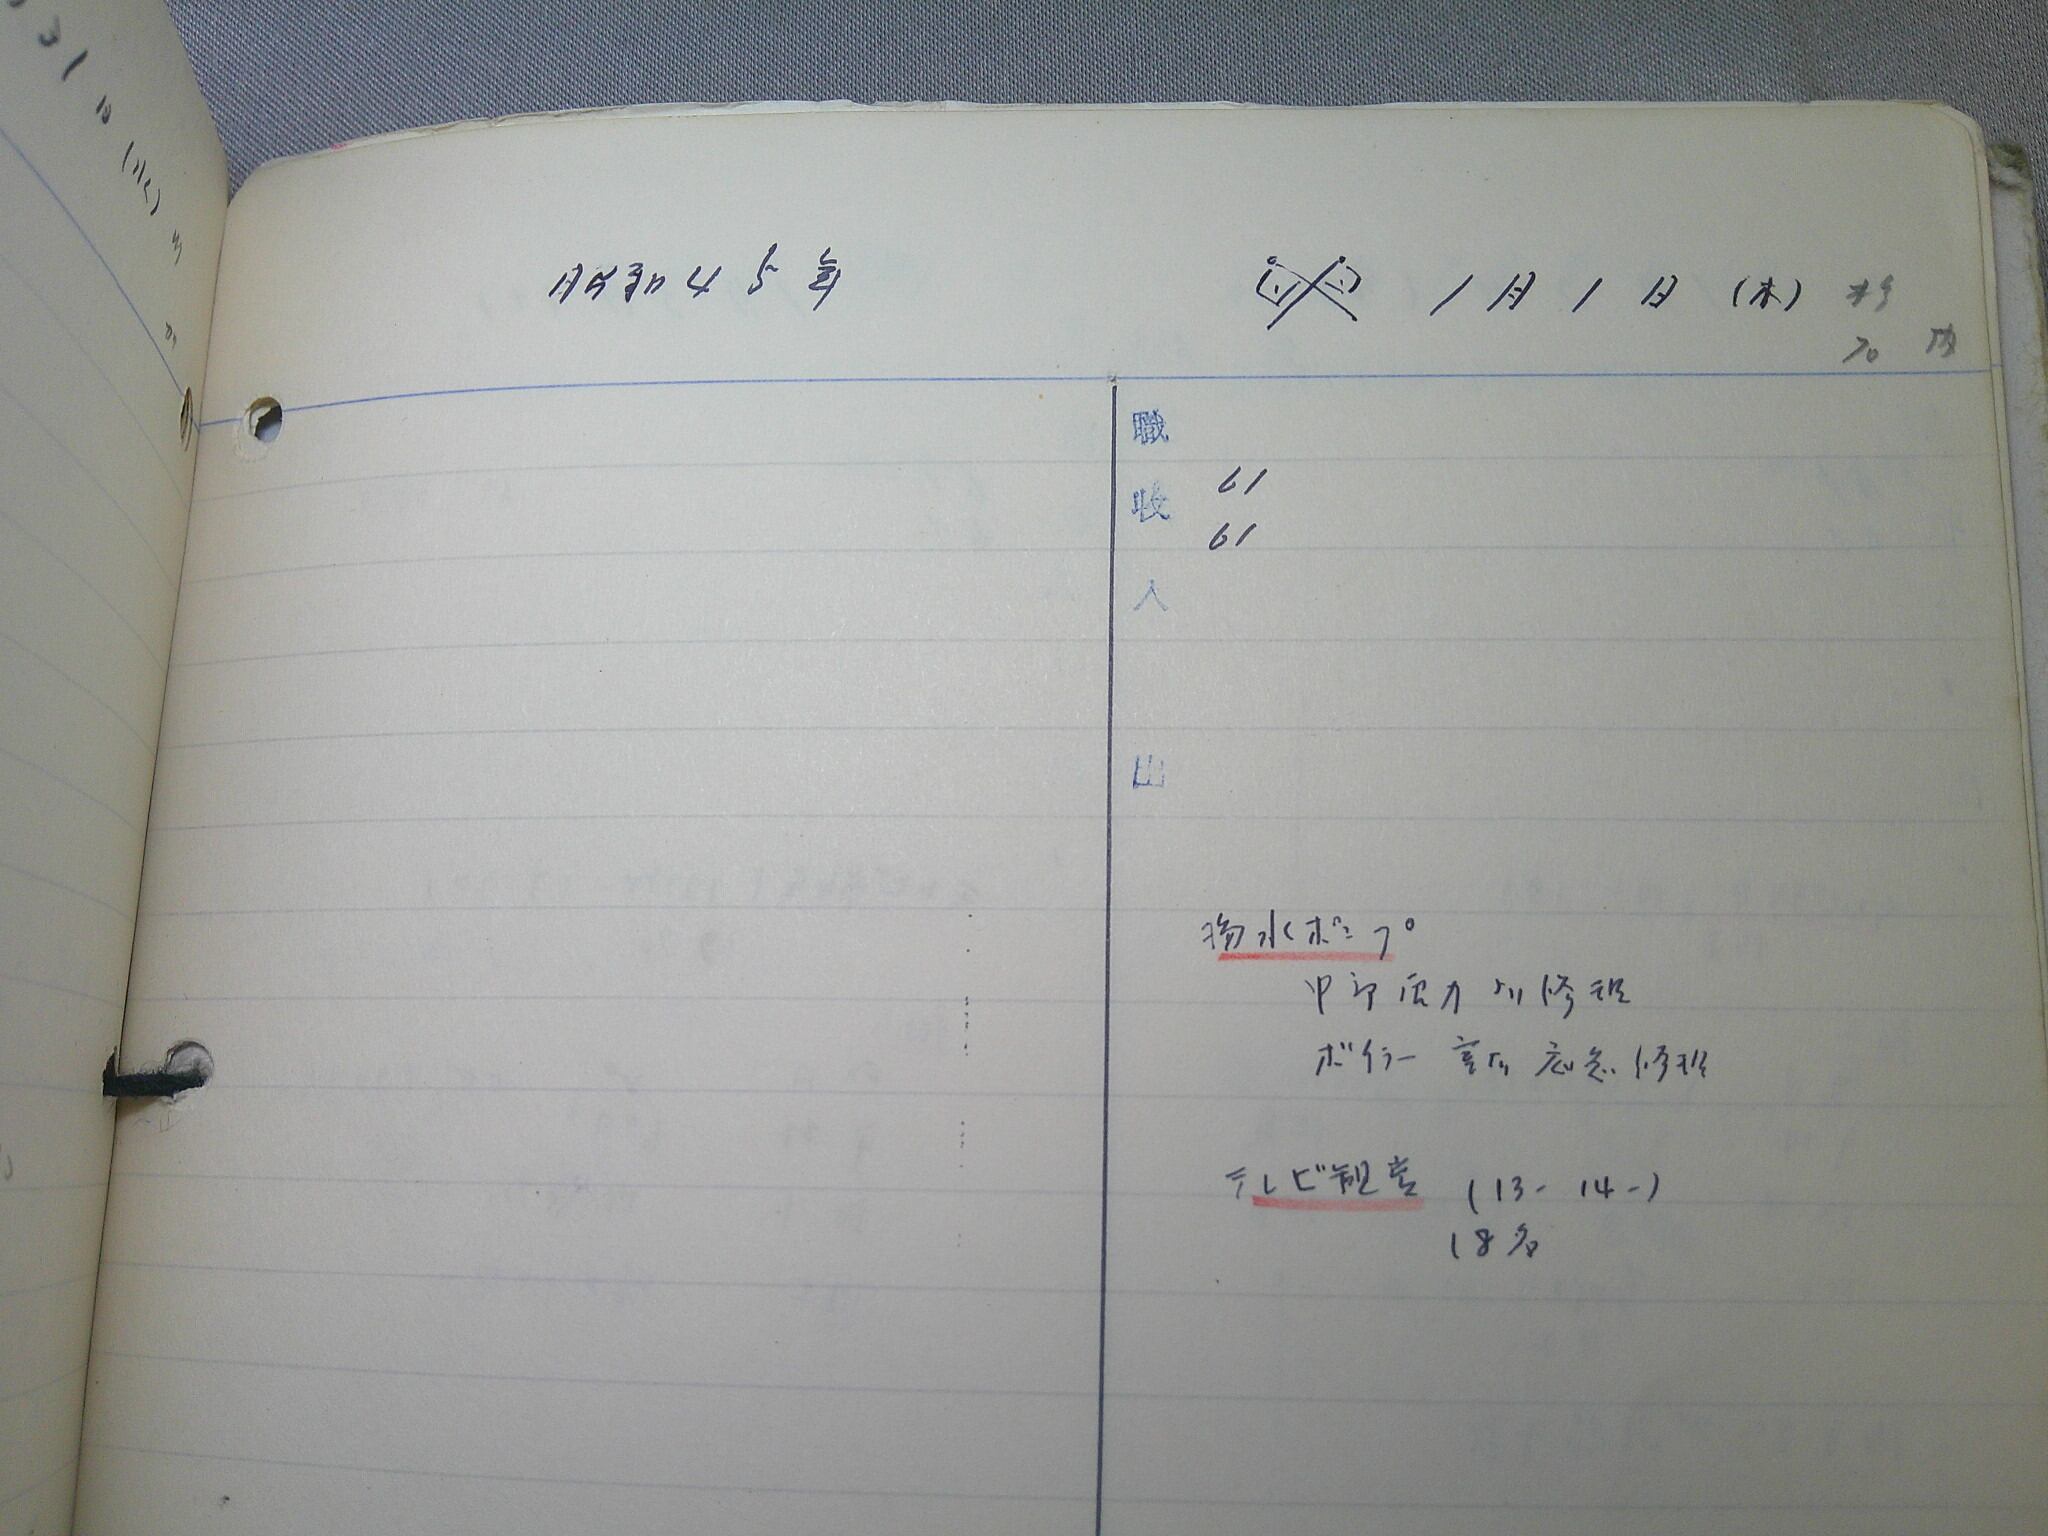 31日(水)
昭和45年
1月1日(木)
職
収 61
61
入
出
揚水ポンプ
中部電力より修理
ボイラー室の応急修理
テレビ観賞 (13- 14-)
18名